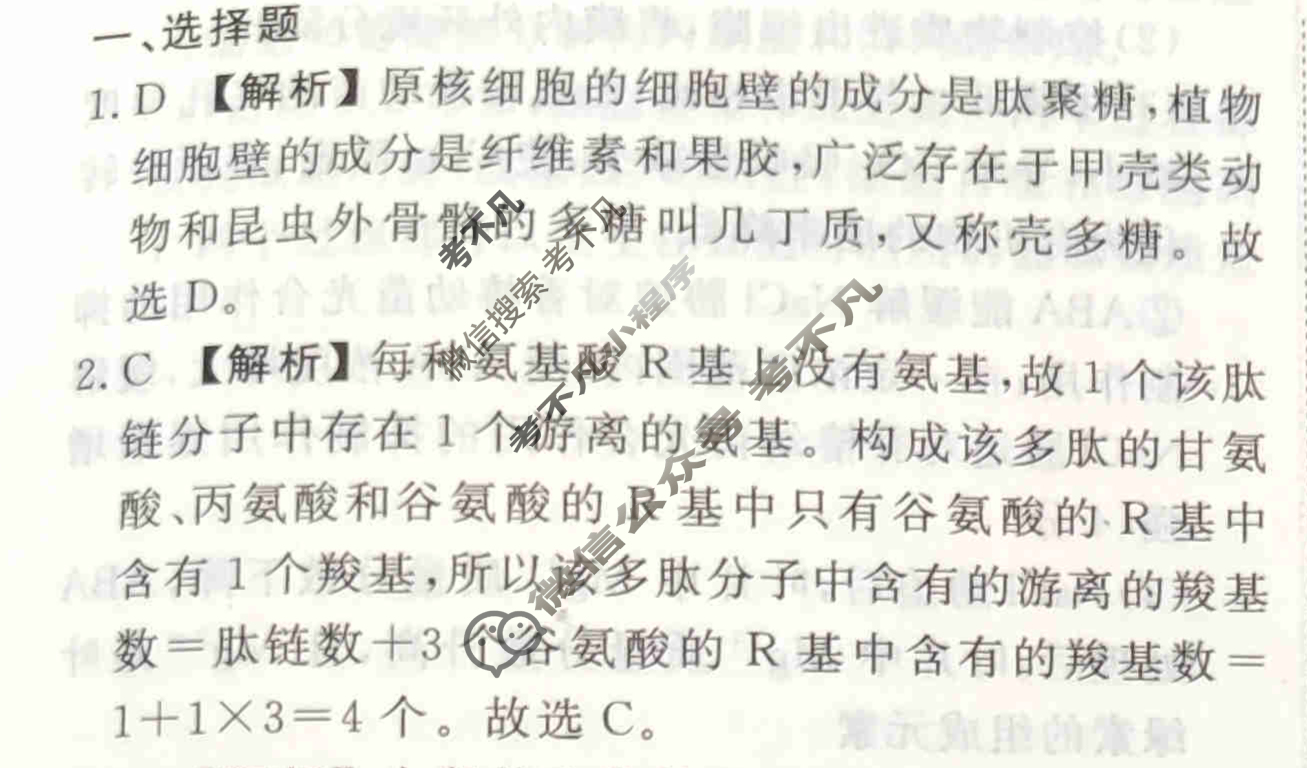 一、选择题
1. D 【解析】原核细胞的细胞壁的成分是肽聚糖,植物
细胞壁的成分是纤维素和果胶,广泛存在于甲壳类动
物和昆虫外骨骼的多糖叫几丁质,又称壳多糖。故
选 D。
2. C 【解析】每种氨基酸 R 基上没有氨基,故 1 个该肽
链分子中存在 1 个游离的氨基。构成该多肽的甘氨
酸、丙氨酸和谷氨酸的 R 基中只有谷氨酸的 R 基中
含有 1 个羧基,所以该多肽分子中含有的游离的羧基
数=肽链数+3 个谷氨酸的 R 基中含有的羧基数=
1+1×3=4 个。故选 C。
考不凡
微信搜索 考不凡
考不凡小程序
微信公众号 考不凡